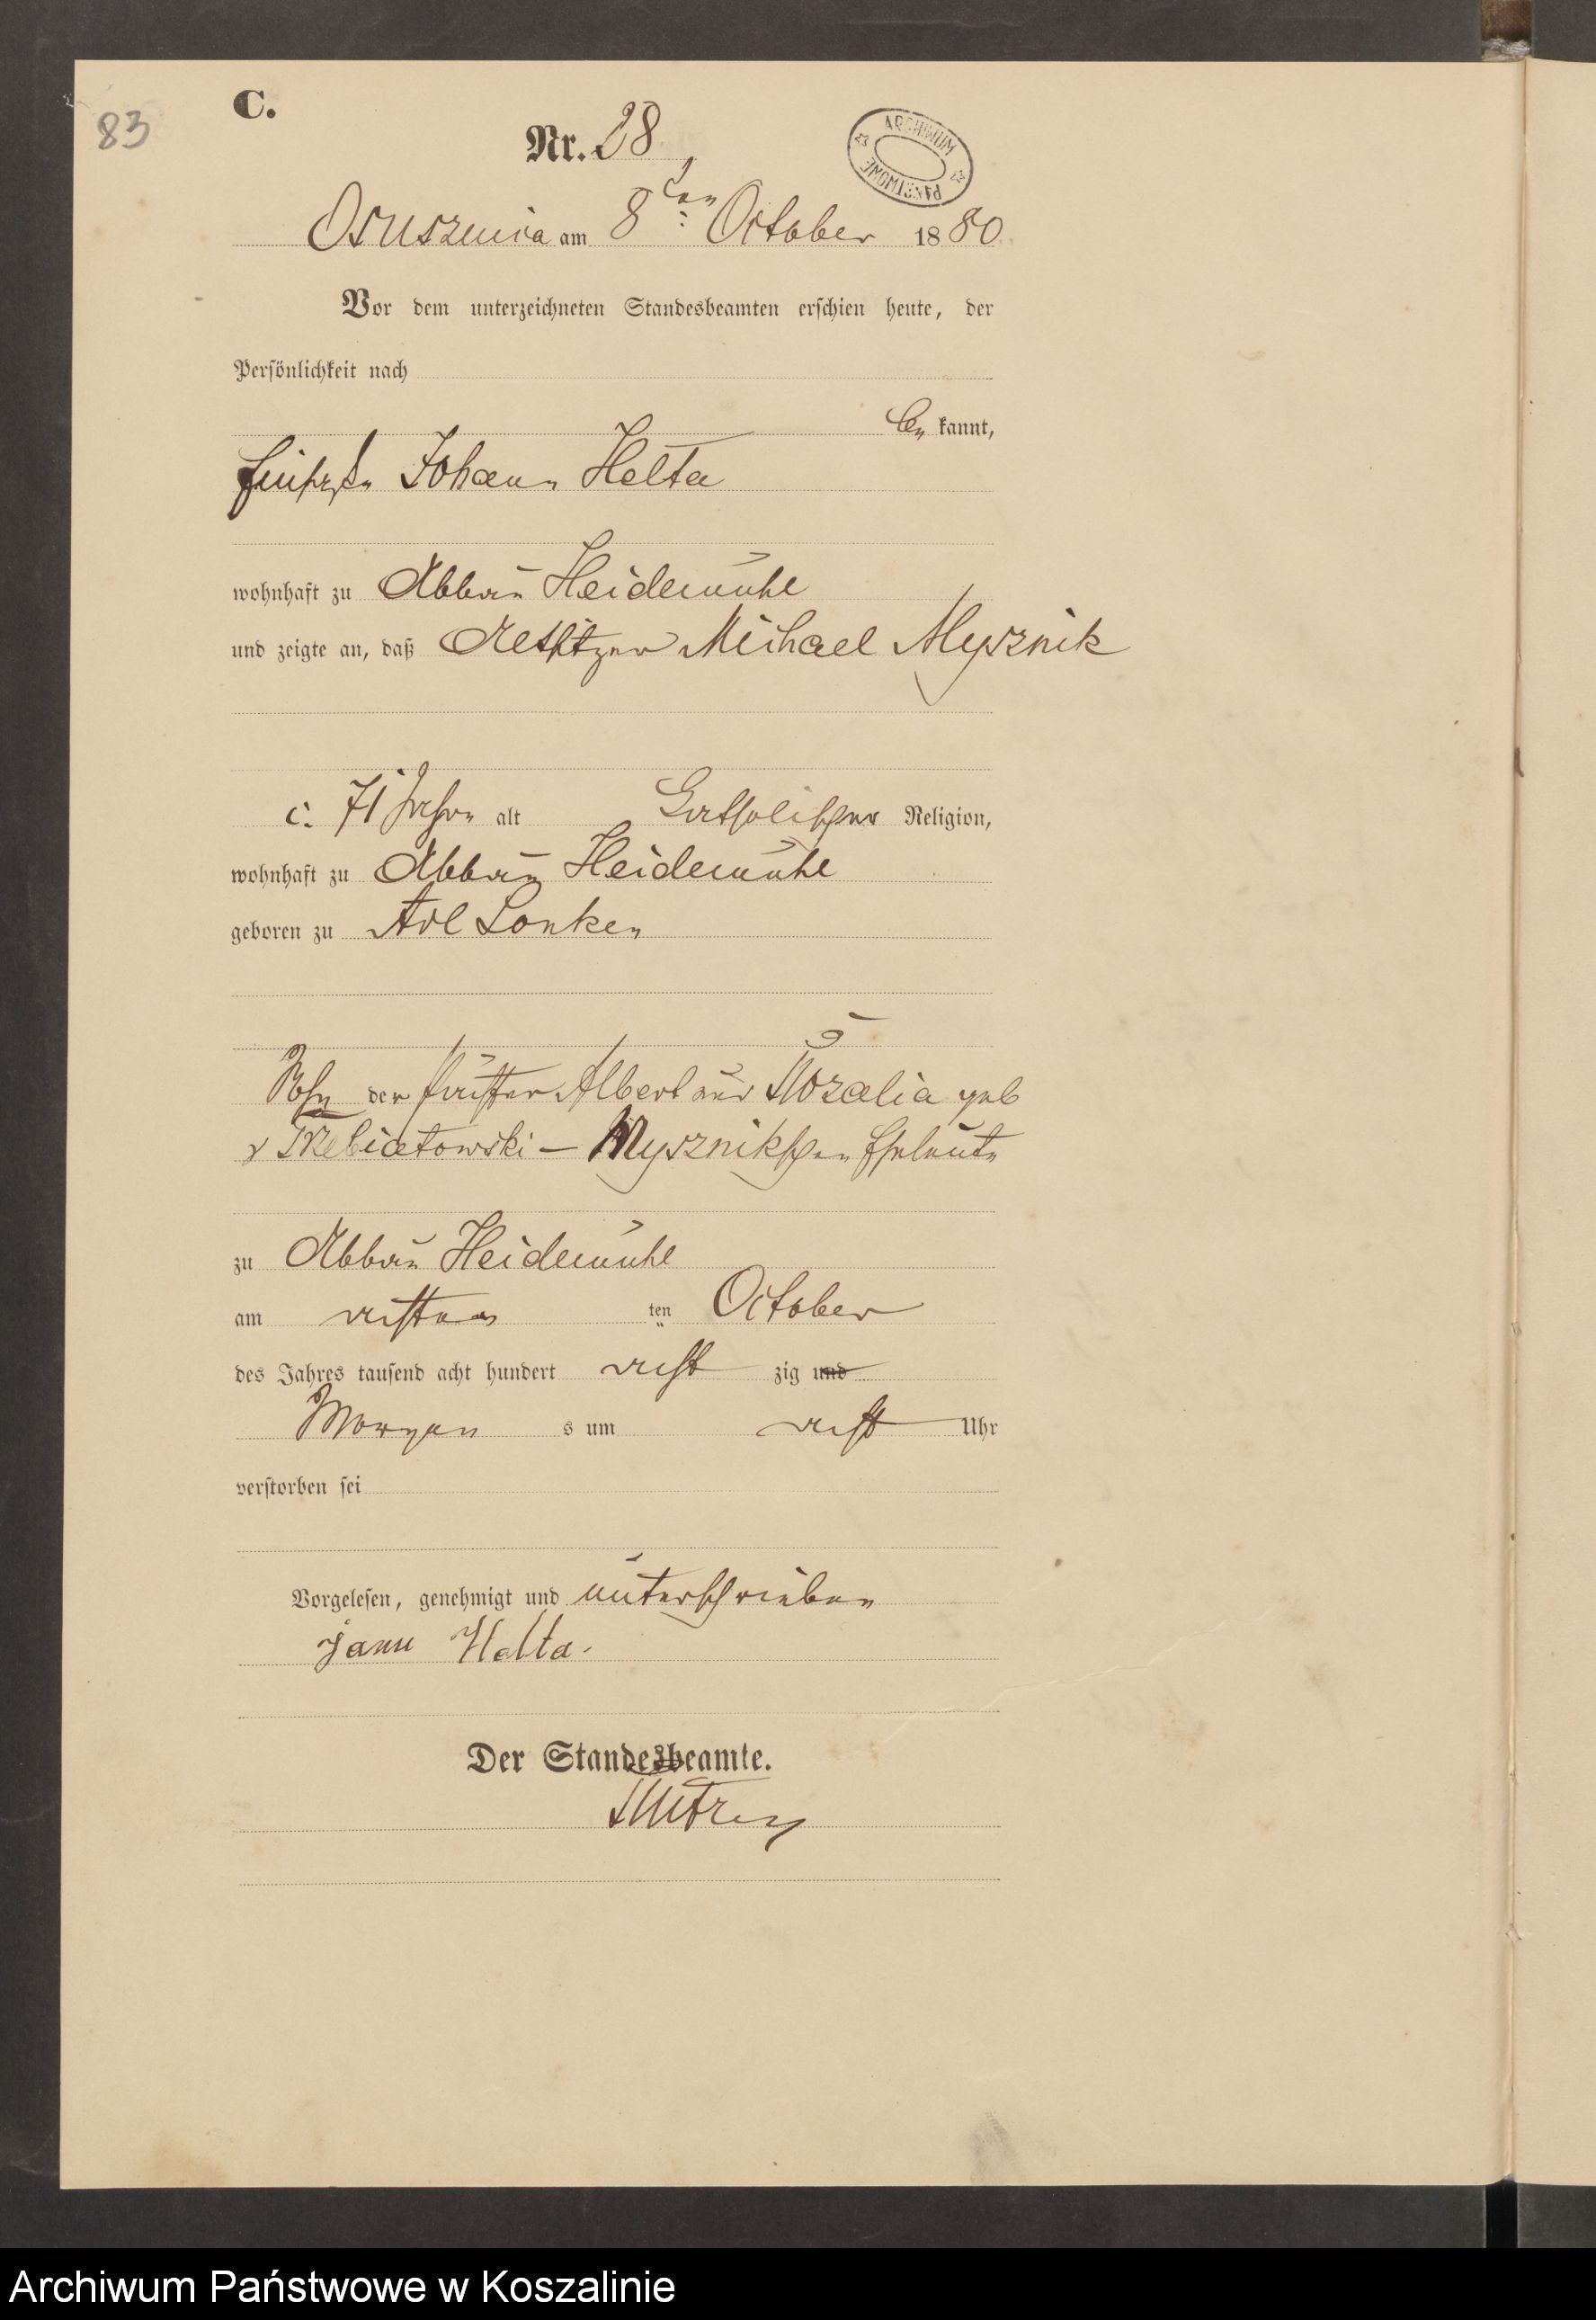 83
C.
Nr. 28
ARCHIWUM PAŃSTWOWE
Osusznica am 8ten October 1880
Vor dem unterzeichneten Standesbeamten erschien heute, der
Persönlichkeit nach
be kannt,
Johann Helta
wohnhaft zu Abbau Heidemühl
und zeigte an, daß Altsitzer Michael Mysznik
c. 71 Jahre alt Catholischer Religion,
wohnhaft zu Abbau Heidemühl
geboren zu Adl Lonken
Sohn der Albert und Rozalia geb
v Trzebiatowski - Myszникschen Eheleute
zu Abbau Heidemühl
am achten ten October
des Jahres tausend acht hundert acht zig und
Morgen s um acht Uhr
verstorben sei
Vorgelesen, genehmigt und unterschrieben
Jann Halta.
Der Standesbeamte.
Archiwum Państwowe w Koszalinie